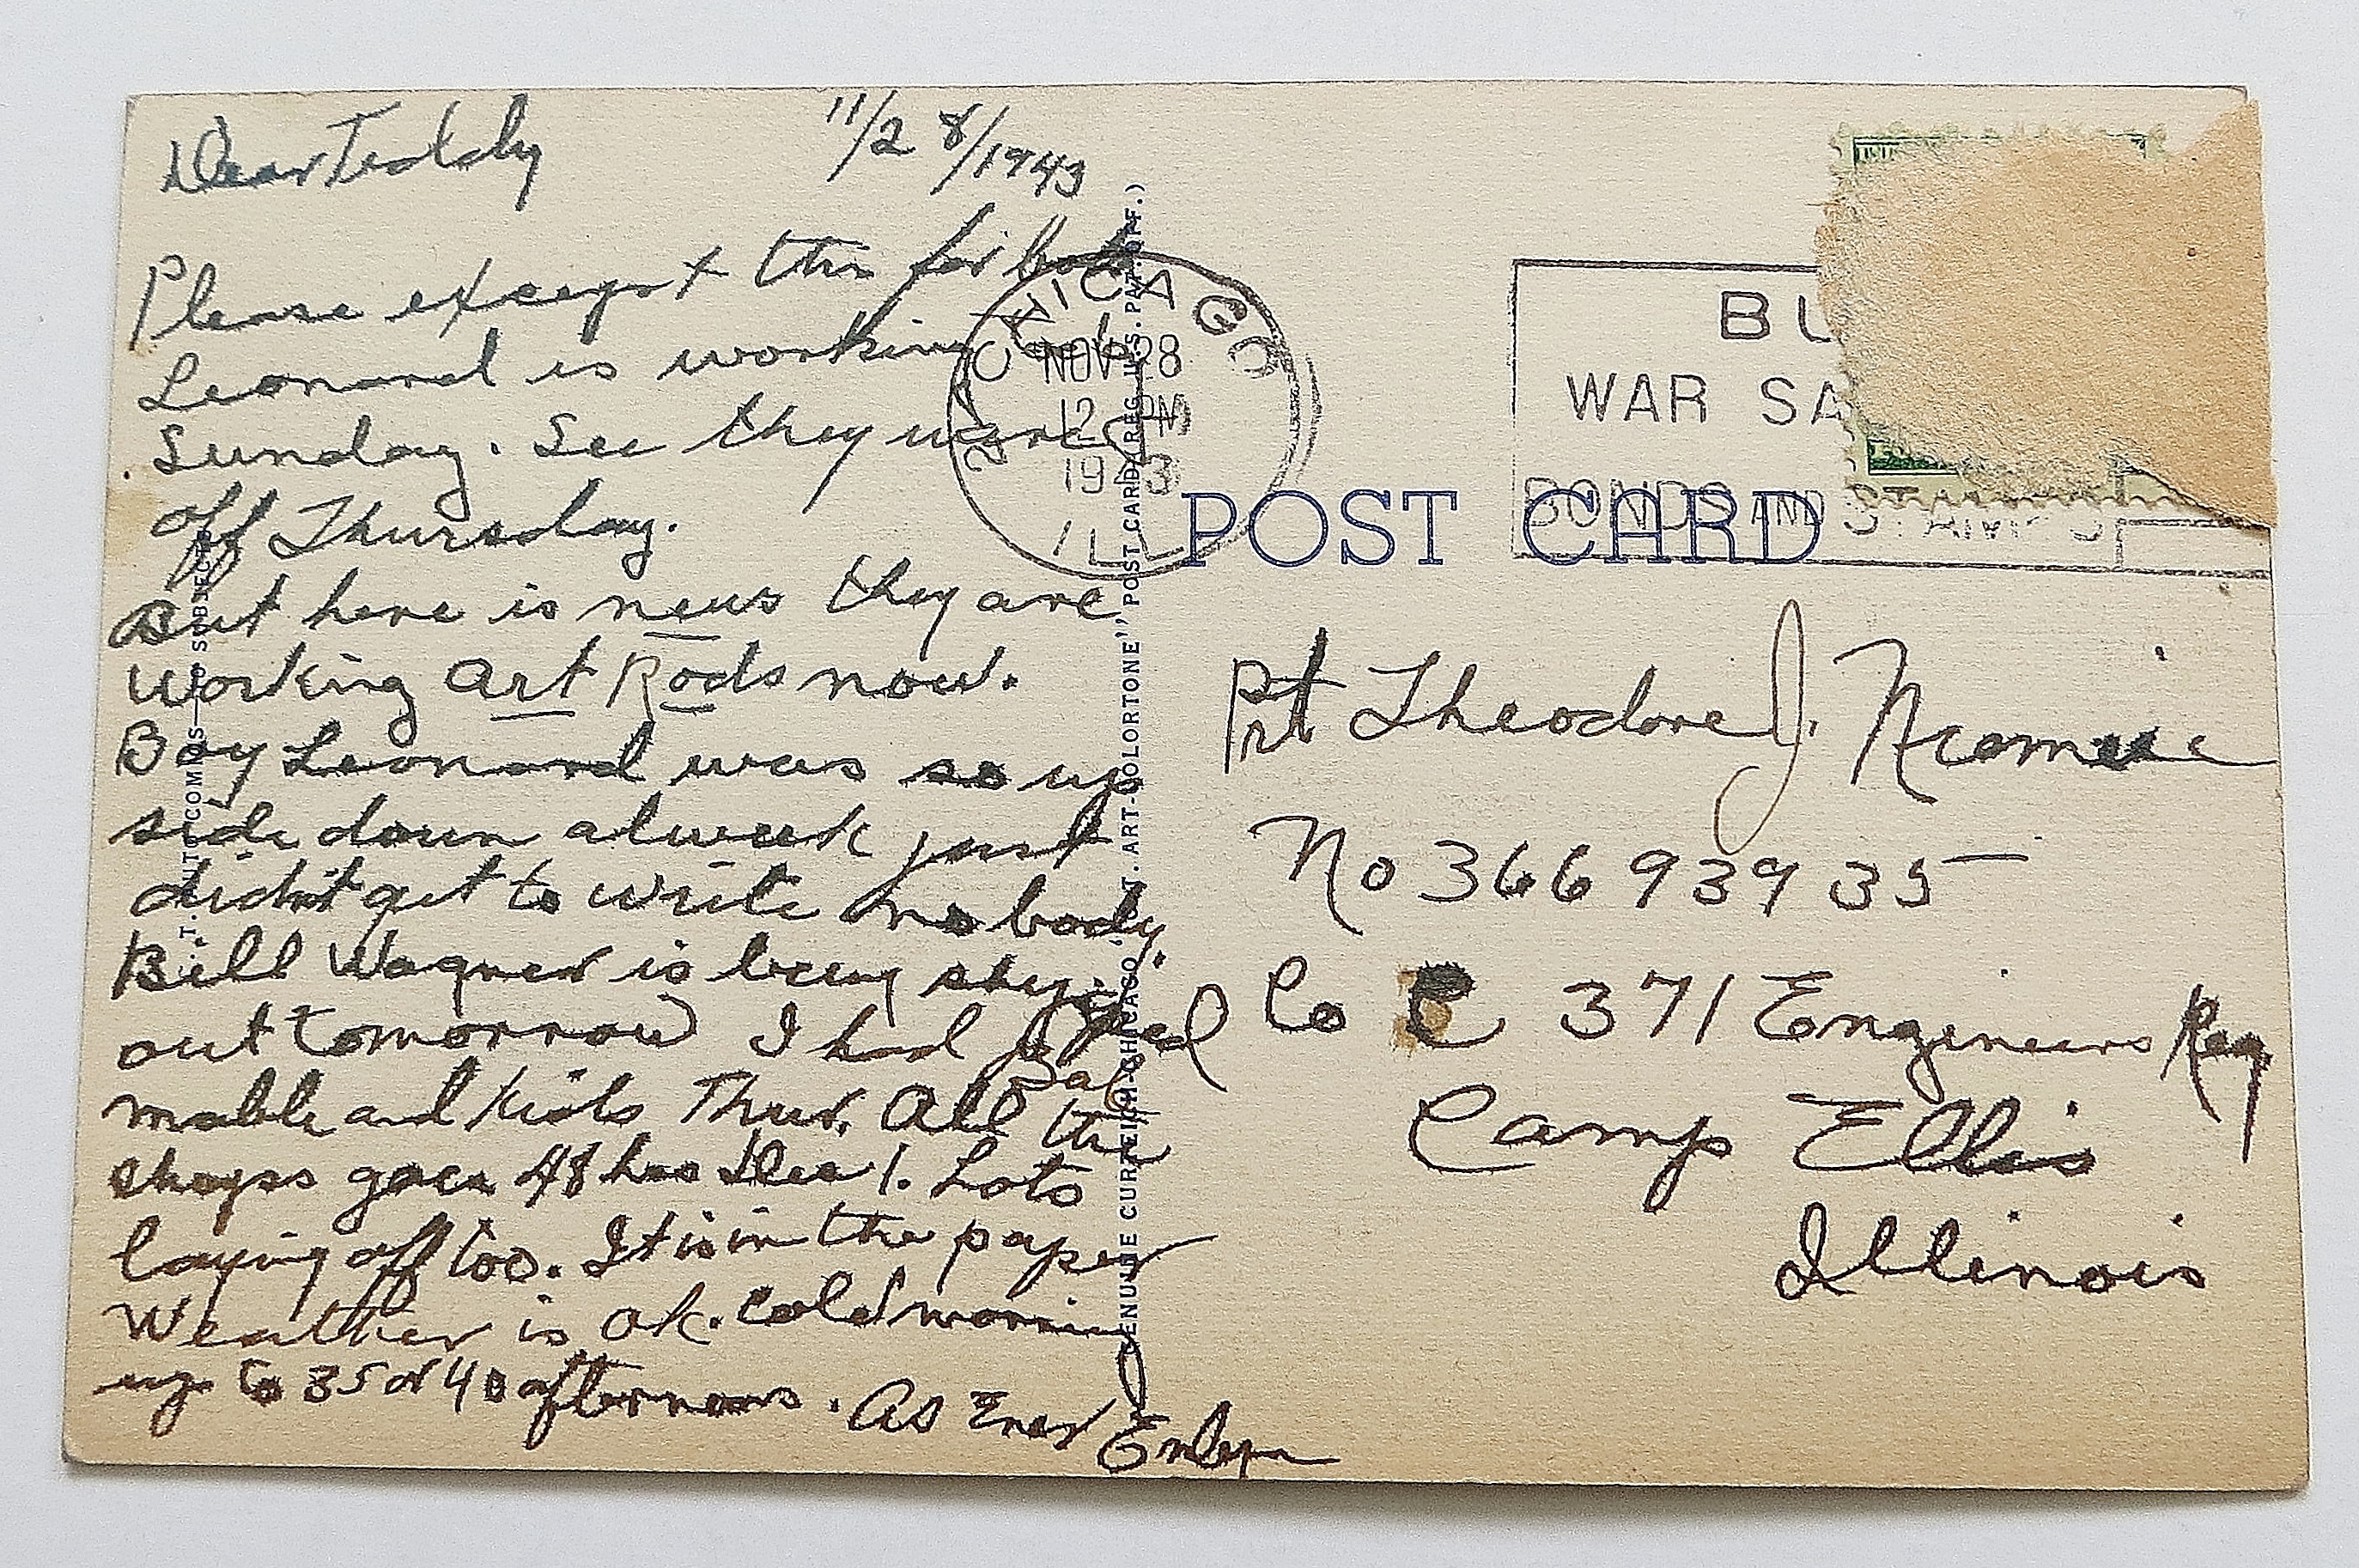 Dear Teddy 11/28/1943
Please except this for both
Leonard is working
Sunday. See they were
off Thursday.
But here is news they are
working Art Rods now.
Boy Leonard was so up
side down alweek just
didn't get to write no body
Bill Wagner is being shipped
out tomorrow I had
and kids Thur. All the
shops goes 48 hrs Dec 1. Lots
laying off too. It is in the paper
Weather is ok. Cold morning
up to 35 or 40 afternoons. As Ever
CHICAGO
NOV 28
12 PM
1943
ILL
BU
WAR SA
BONDS AND STAMPS
POST CARD
Pvt Theodore J.
No 36693935
Co C 371 Engineers Reg
Camp Ellis
Illinois
C.T. ART-COLORTONE" POST CARD (REG. U.S. PAT. OFF.)
GENUINE CURTEICH-CHICAGO